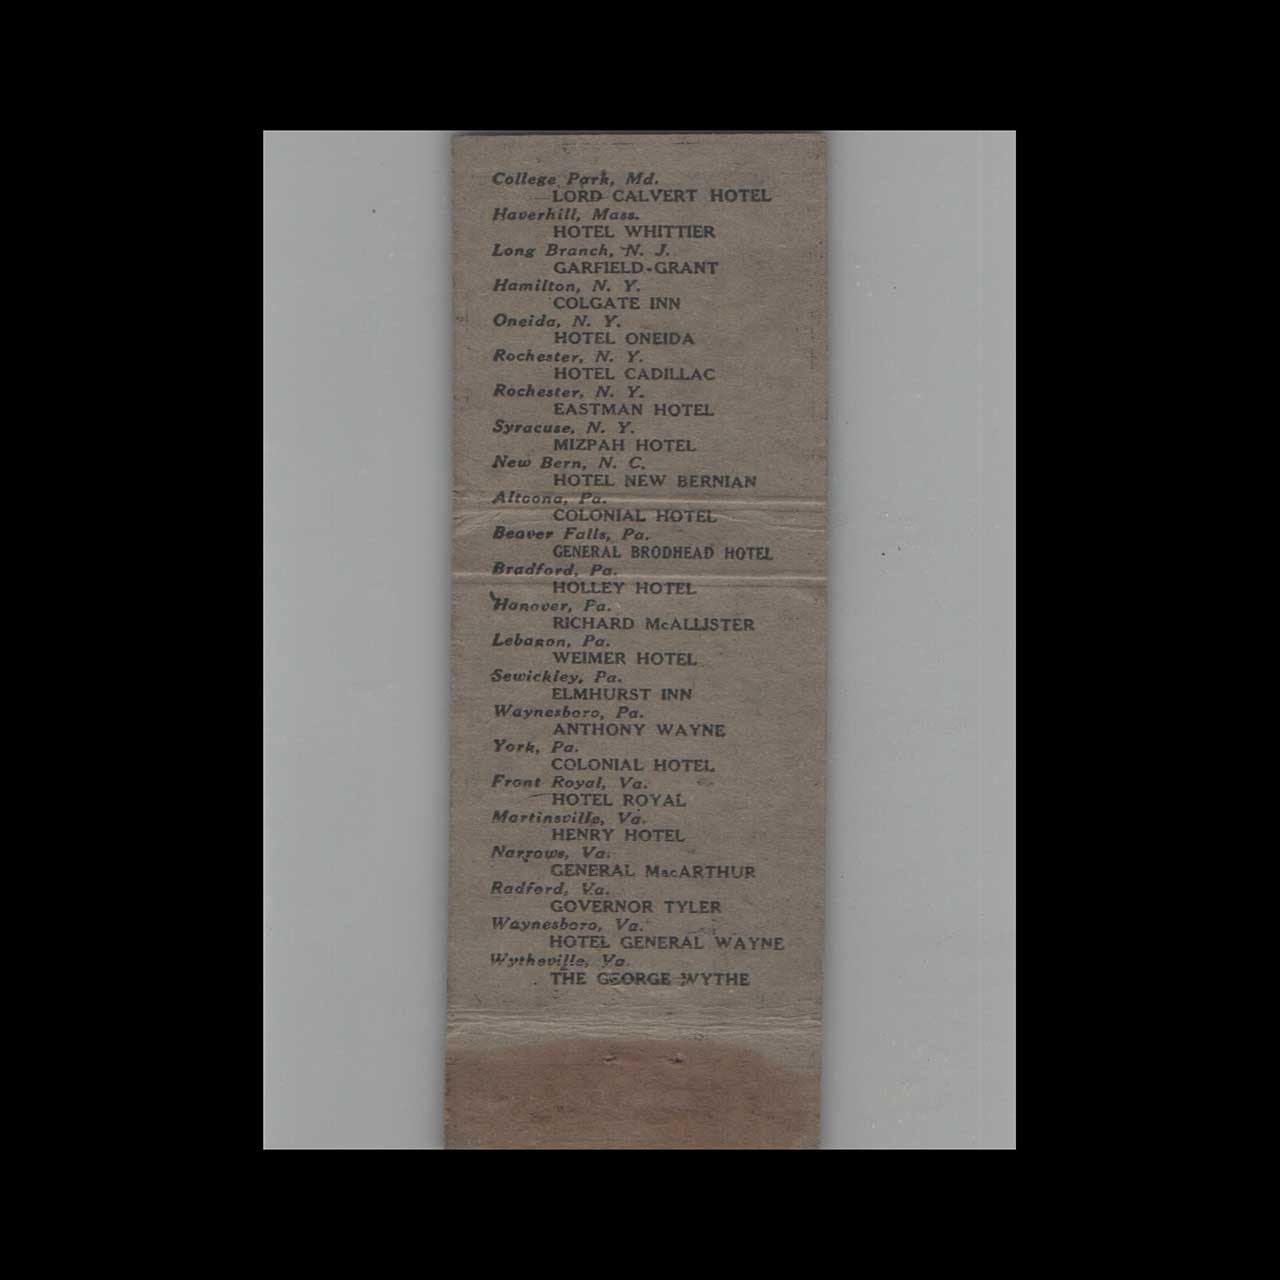 College Park, Md.
LORD CALVERT HOTEL
Haverhill, Mass.
HOTEL WHITTIER
Long Branch, N. J.
GARFIELD-GRANT
Hamilton, N. Y.
COLGATE INN
Oneida, N. Y.
HOTEL ONEIDA
Rochester, N. Y.
HOTEL CADILLAC
Rochester, N. Y.
EASTMAN HOTEL
Syracuse, N. Y.
MIZPAH HOTEL
New Bern, N. C.
HOTEL NEW BERNIAN
Altoona, Pa.
COLONIAL HOTEL
Beaver Falls, Pa.
GENERAL BRODHEAD HOTEL
Bradford, Pa.
HOLLEY HOTEL
Hanover, Pa.
RICHARD McALLISTER
Lebanon, Pa.
WEIMER HOTEL
Sewickley, Pa.
ELMHURST INN
Waynesboro, Pa.
ANTHONY WAYNE
York, Pa.
COLONIAL HOTEL
Front Royal, Va.
HOTEL ROYAL
Martinsville, Va.
HENRY HOTEL
Narrows, Va.
GENERAL MacARTHUR
Radford, Va.
GOVERNOR TYLER
Waynesboro, Va.
HOTEL GENERAL WAYNE
Wytheville, Va.
THE GEORGE WYTHE